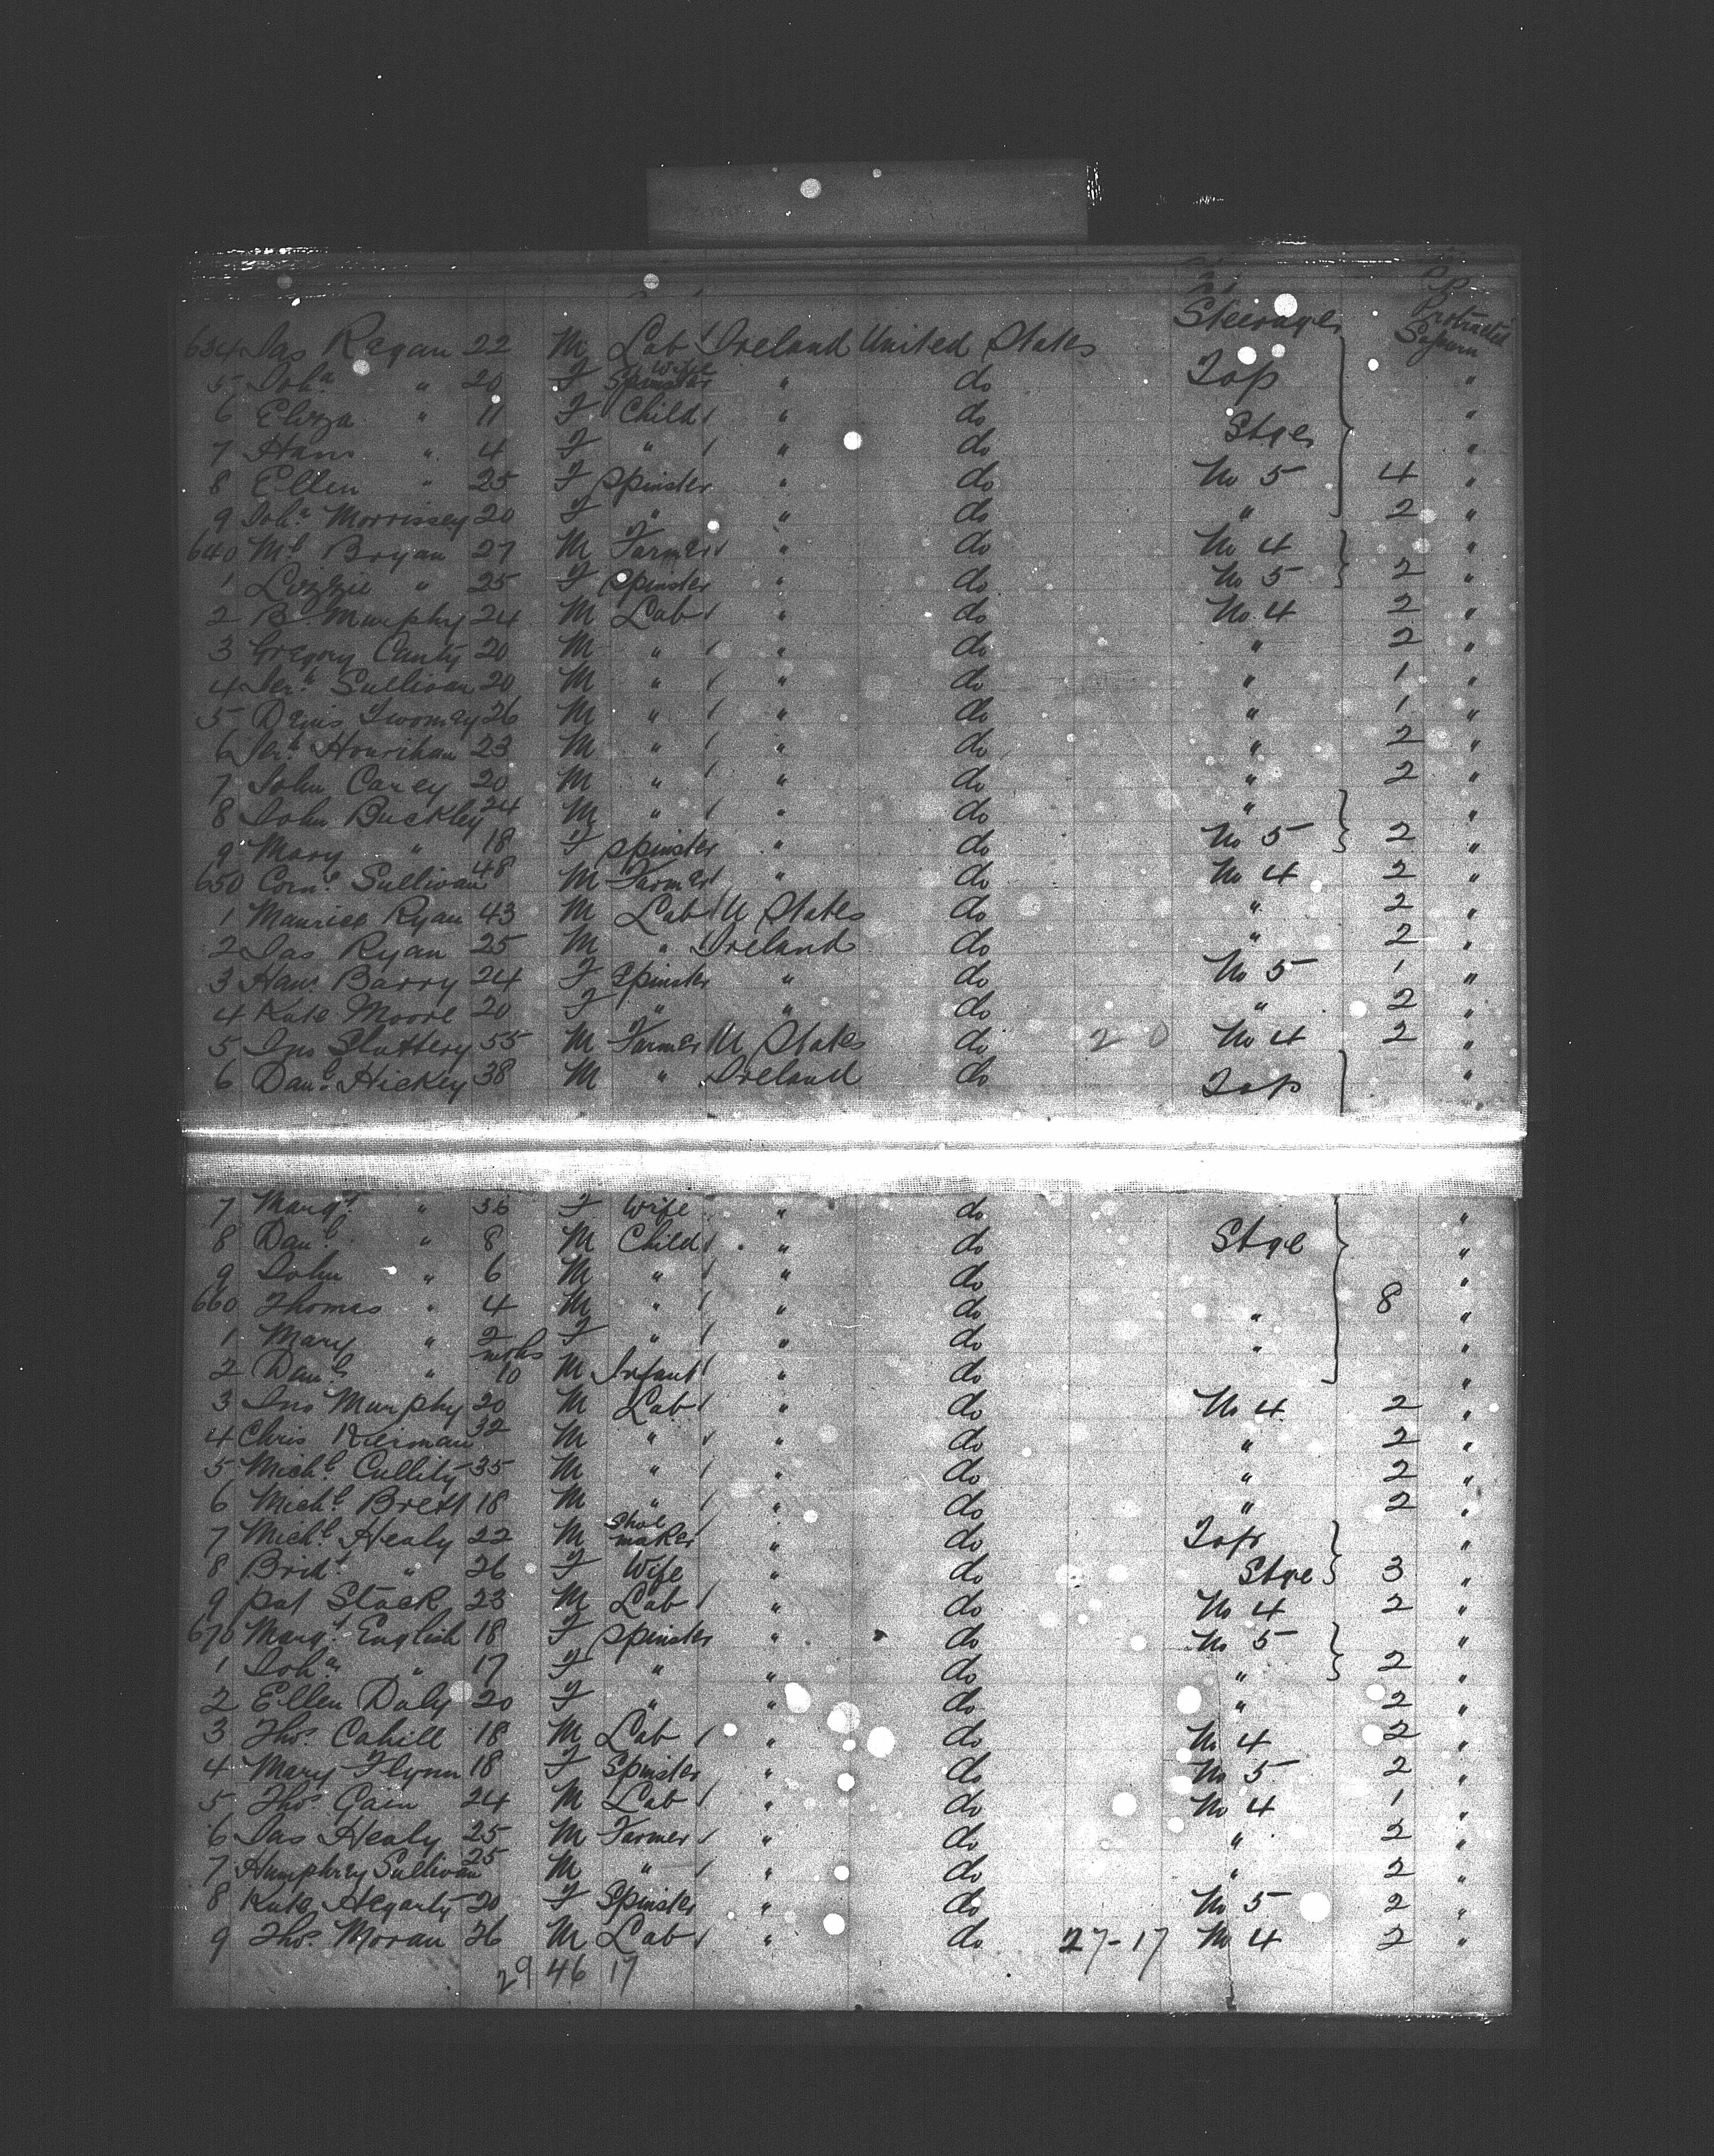 Steerage Protracted Sojourn
634 Jas Regan 22 M Lab Ireland United States
5 Joh.a " 20 F Spinster wife " do Top "
6 Eliza " 11 F Child " do "
Stge
7 Han " 4 F " " do "
8 Ellen " 25 F Spinster " do No 5 4 "
9 Joh.a Morrissey 20 F " " do " 2 "
640 Ml Bryan 27 M Farmer " do No 4 "
1 Lizzie " 25 F Spinster " do No 5 2 "
2 B. Murphy 24 M Lab " do No 4 2 "
3 Gregory Canty 20 M " " do " 2 "
4 Jer.h Sullivan 20 M " " do " 1 "
5 Denis Twomey 26 M " " do " 1 "
6 Jer.h Hourihan 23 M " " do " 2 "
7 John Carey 20 M " " do " 2 "
8 John Buckley 24 M " " do " "
9 Mary " 18 F Spinster " do No 5 2 "
650 Corn.s Sullivan 48 M Farmer " do No 4 2 "
1 Maurice Ryan 43 M Lab U States do " 2 "
2 Jas Ryan 25 M " Ireland do " 2 "
3 Han Barry 24 F Spinster " do No 5 1 "
4 Kate Moore 20 F " " do " 2 "
5 Jno Slattery 55 M Farmer U States do 2 0 No 4 2 "
6 Dan.l Hickey 38 M " Ireland do Top "
7 Marg.t " 36 F Wife " do "
8 Dan.l " 8 M Child " do Stge "
9 John " 6 M " " do "
660 Thomas " 4 M " " do " 8 "
1 Mary " 2 F " " do " "
2 Dan.l " mths 10 M Infant " do "
3 Jno Murphy 20 M Lab " do No 4 2 "
4 Chris Kiernan 32 M " " do " 2 "
5 Mich.l Cullity 35 M " " do " 2 "
6 Mich.l Brett 18 M " " do " 2 "
7 Mich.l Healy 22 M Shoe maker " do Top "
8 Brid.t " 26 F Wife " do Stge 3 "
9 Pat Stack 23 M Lab " do No 4 2 "
670 Marg.t English 18 F Spinster " do No 5 "
1 Joh.a " 17 F " " do " 2 "
2 Ellen Daly 20 F " " do " 2 "
3 Tho.s Cahill 18 M Lab " do No 4 2 "
4 Mary Flynn 18 F Spinster " do No 5 2 "
5 Tho.s Gain 24 M Lab " do No 4 1 "
6 Jas Healy 25 M Farmer " do " 2 "
7 Humphrey Sullivan 25 M " " do " 2 "
8 Kate Hegarty 20 F Spinster " do No 5 2 "
9 Tho.s Moran 26 M Lab " do 27-17 No 4 2 "
29 46 17